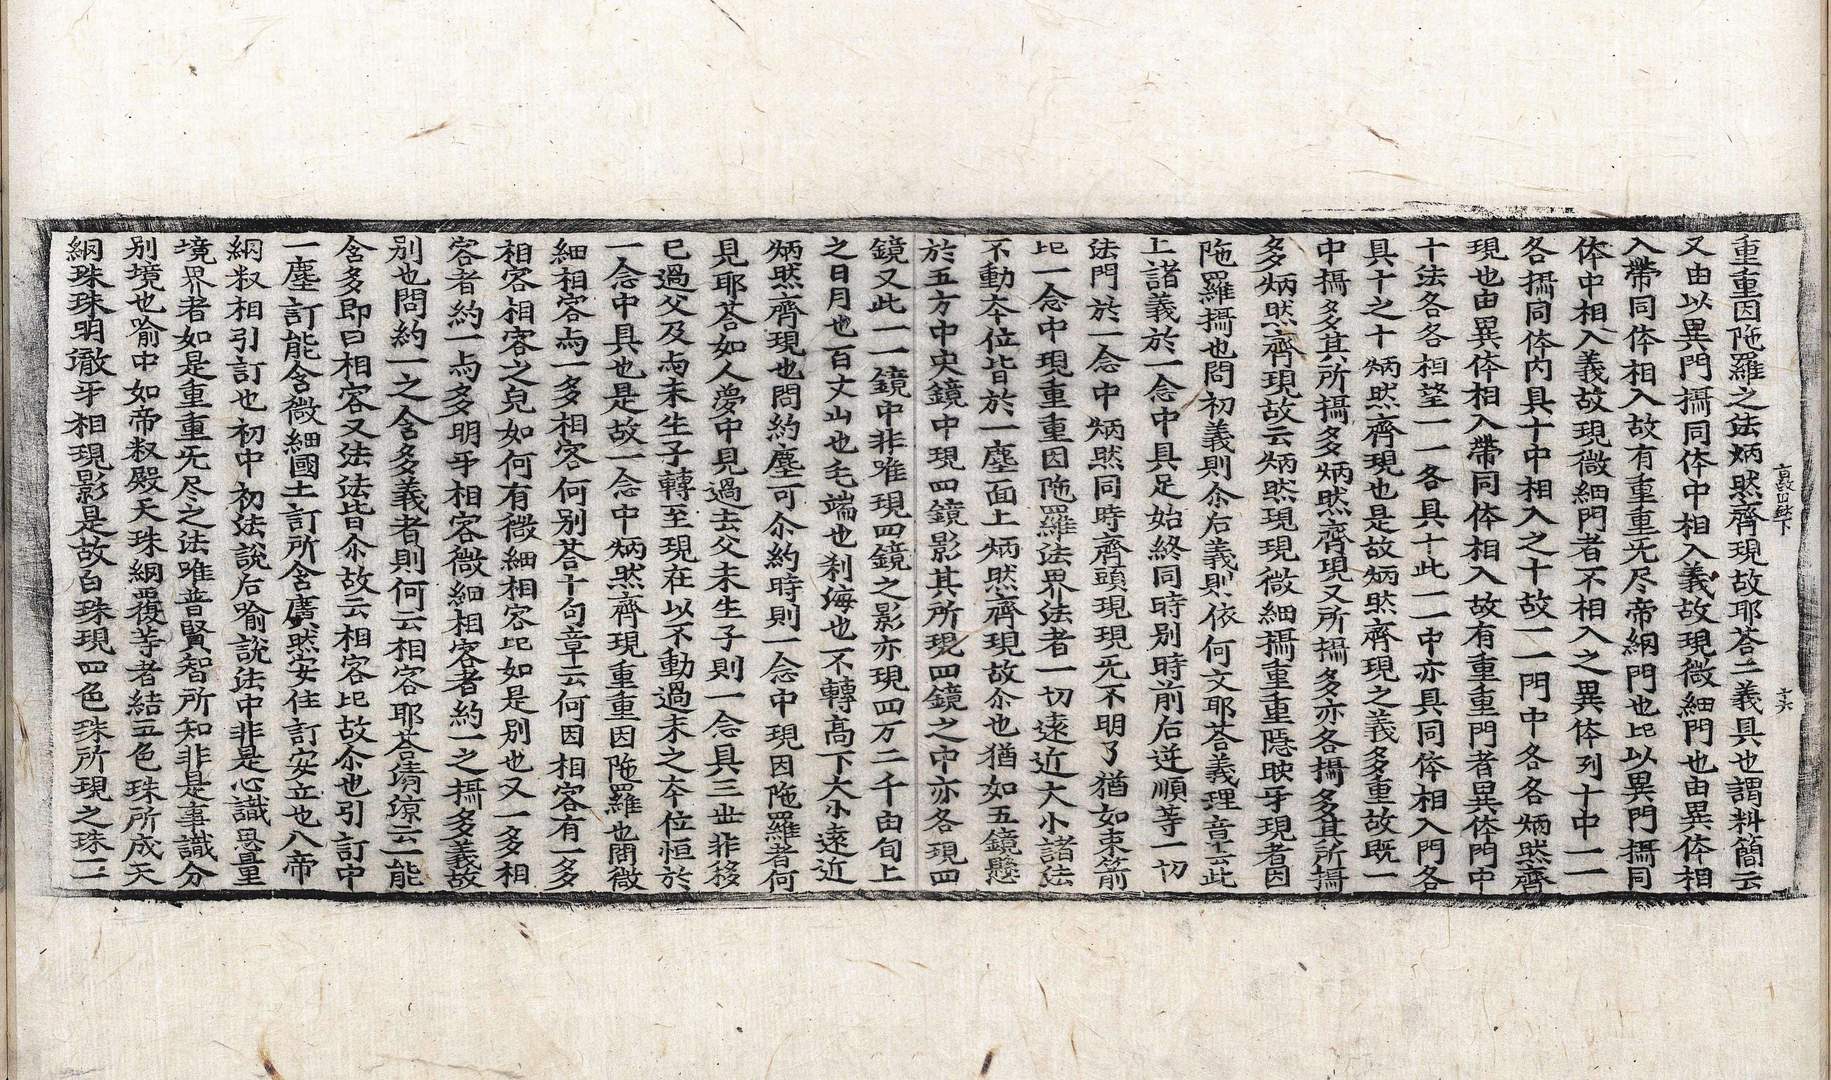 重重因陁羅之法炳然齊現故耶荅二義具也謂料簡云
又由以異門攝同体中相入義故現微細門也由異体相
入帶同体相入故有重重旡尽帝網門也比以異門攝同
体中相入義故現微細門者不相入之異体列十中一一
各攝同体內具十中相入之十故一一門中各各炳然齊
現也由異体相入帶同体相入故有重重門者異体門中
十法各各相望一一各具十此一一中亦具同体相入門各
具十之十炳然齊現也是故炳然齊現之義多重故既一
中攝多其所攝多炳然齊現又所攝多亦各攝多其所攝
多炳然齊現故云炳然現現微細攝重重隱映牙現者因
陁羅攝也問初義則尒后義則依何文耶荅義理章云此
上諸義於一念中具足始終同時別時前后逆順等一切
法門於一念中炳然同時齊頭現現旡不明了猶如束箭
比一念中現重重因陁羅法界法者一切遠近大小諸法
不動本位皆於一塵面上炳然齊現故尒也猶如五鏡懸
於五方中央鏡中現四鏡影其所現四鏡之中亦各現四
鏡又此一一鏡中非唯現四鏡之影亦現四万二千由旬上
之日月也百丈山也毛端也刹海也不轉高下大小遠近
炳然齊現也問約塵可尒約時則一念中現因陁羅者何
見耶荅如人夢中見過去父未生子則一念具三世非移
已過父及与未生子轉至現在以不動過未之本位恒於
一念中具也是故一念中炳然齊現重重因陁羅也問微
細相容与一多相容何別荅十句章云何因相容有一多
相容相容之皃如何有微細相容比如是別也又一多相
容者約一与多明牙相容微細相容者約一之攝多義故
別也問約一之含多義者則何云相容耶荅淸涼云一能
含多即曰相容又法法皆尒故云相容比故尒也引訂中
一塵訂能含微細國土訂所含廣然安住訂安立也八帝
網㕛相引訂也初中初法說后喻說法中非是心識思量
境界者如是重重旡尽之法唯普賢智所知非是事識分
別境也喻中如帝㕛殿天珠網覆等者結五色珠所成天
網珠珠明徹牙相現影是故白珠現四色珠所現之珠一一